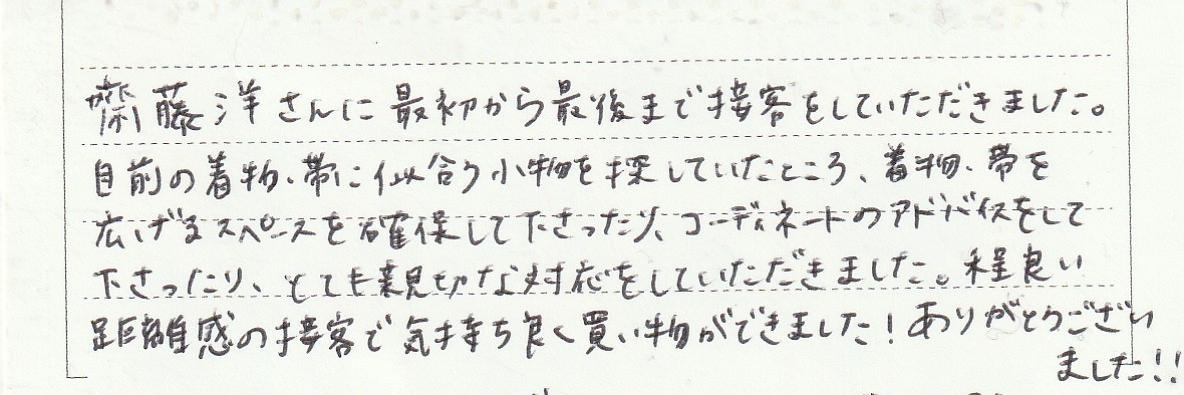 齋藤洋さんに最初から最後まで接客をしていただきました。
自前の着物、帯に似合う小物を探していたところ、着物、帯を
広げるスペースを確保して下さったり、コーディネートのアドバイスをして
下さったり、とても親切な対応をしていただきました。程良い
距離感の接客で気持ち良く買い物ができました！ありがとうござい
ました!!